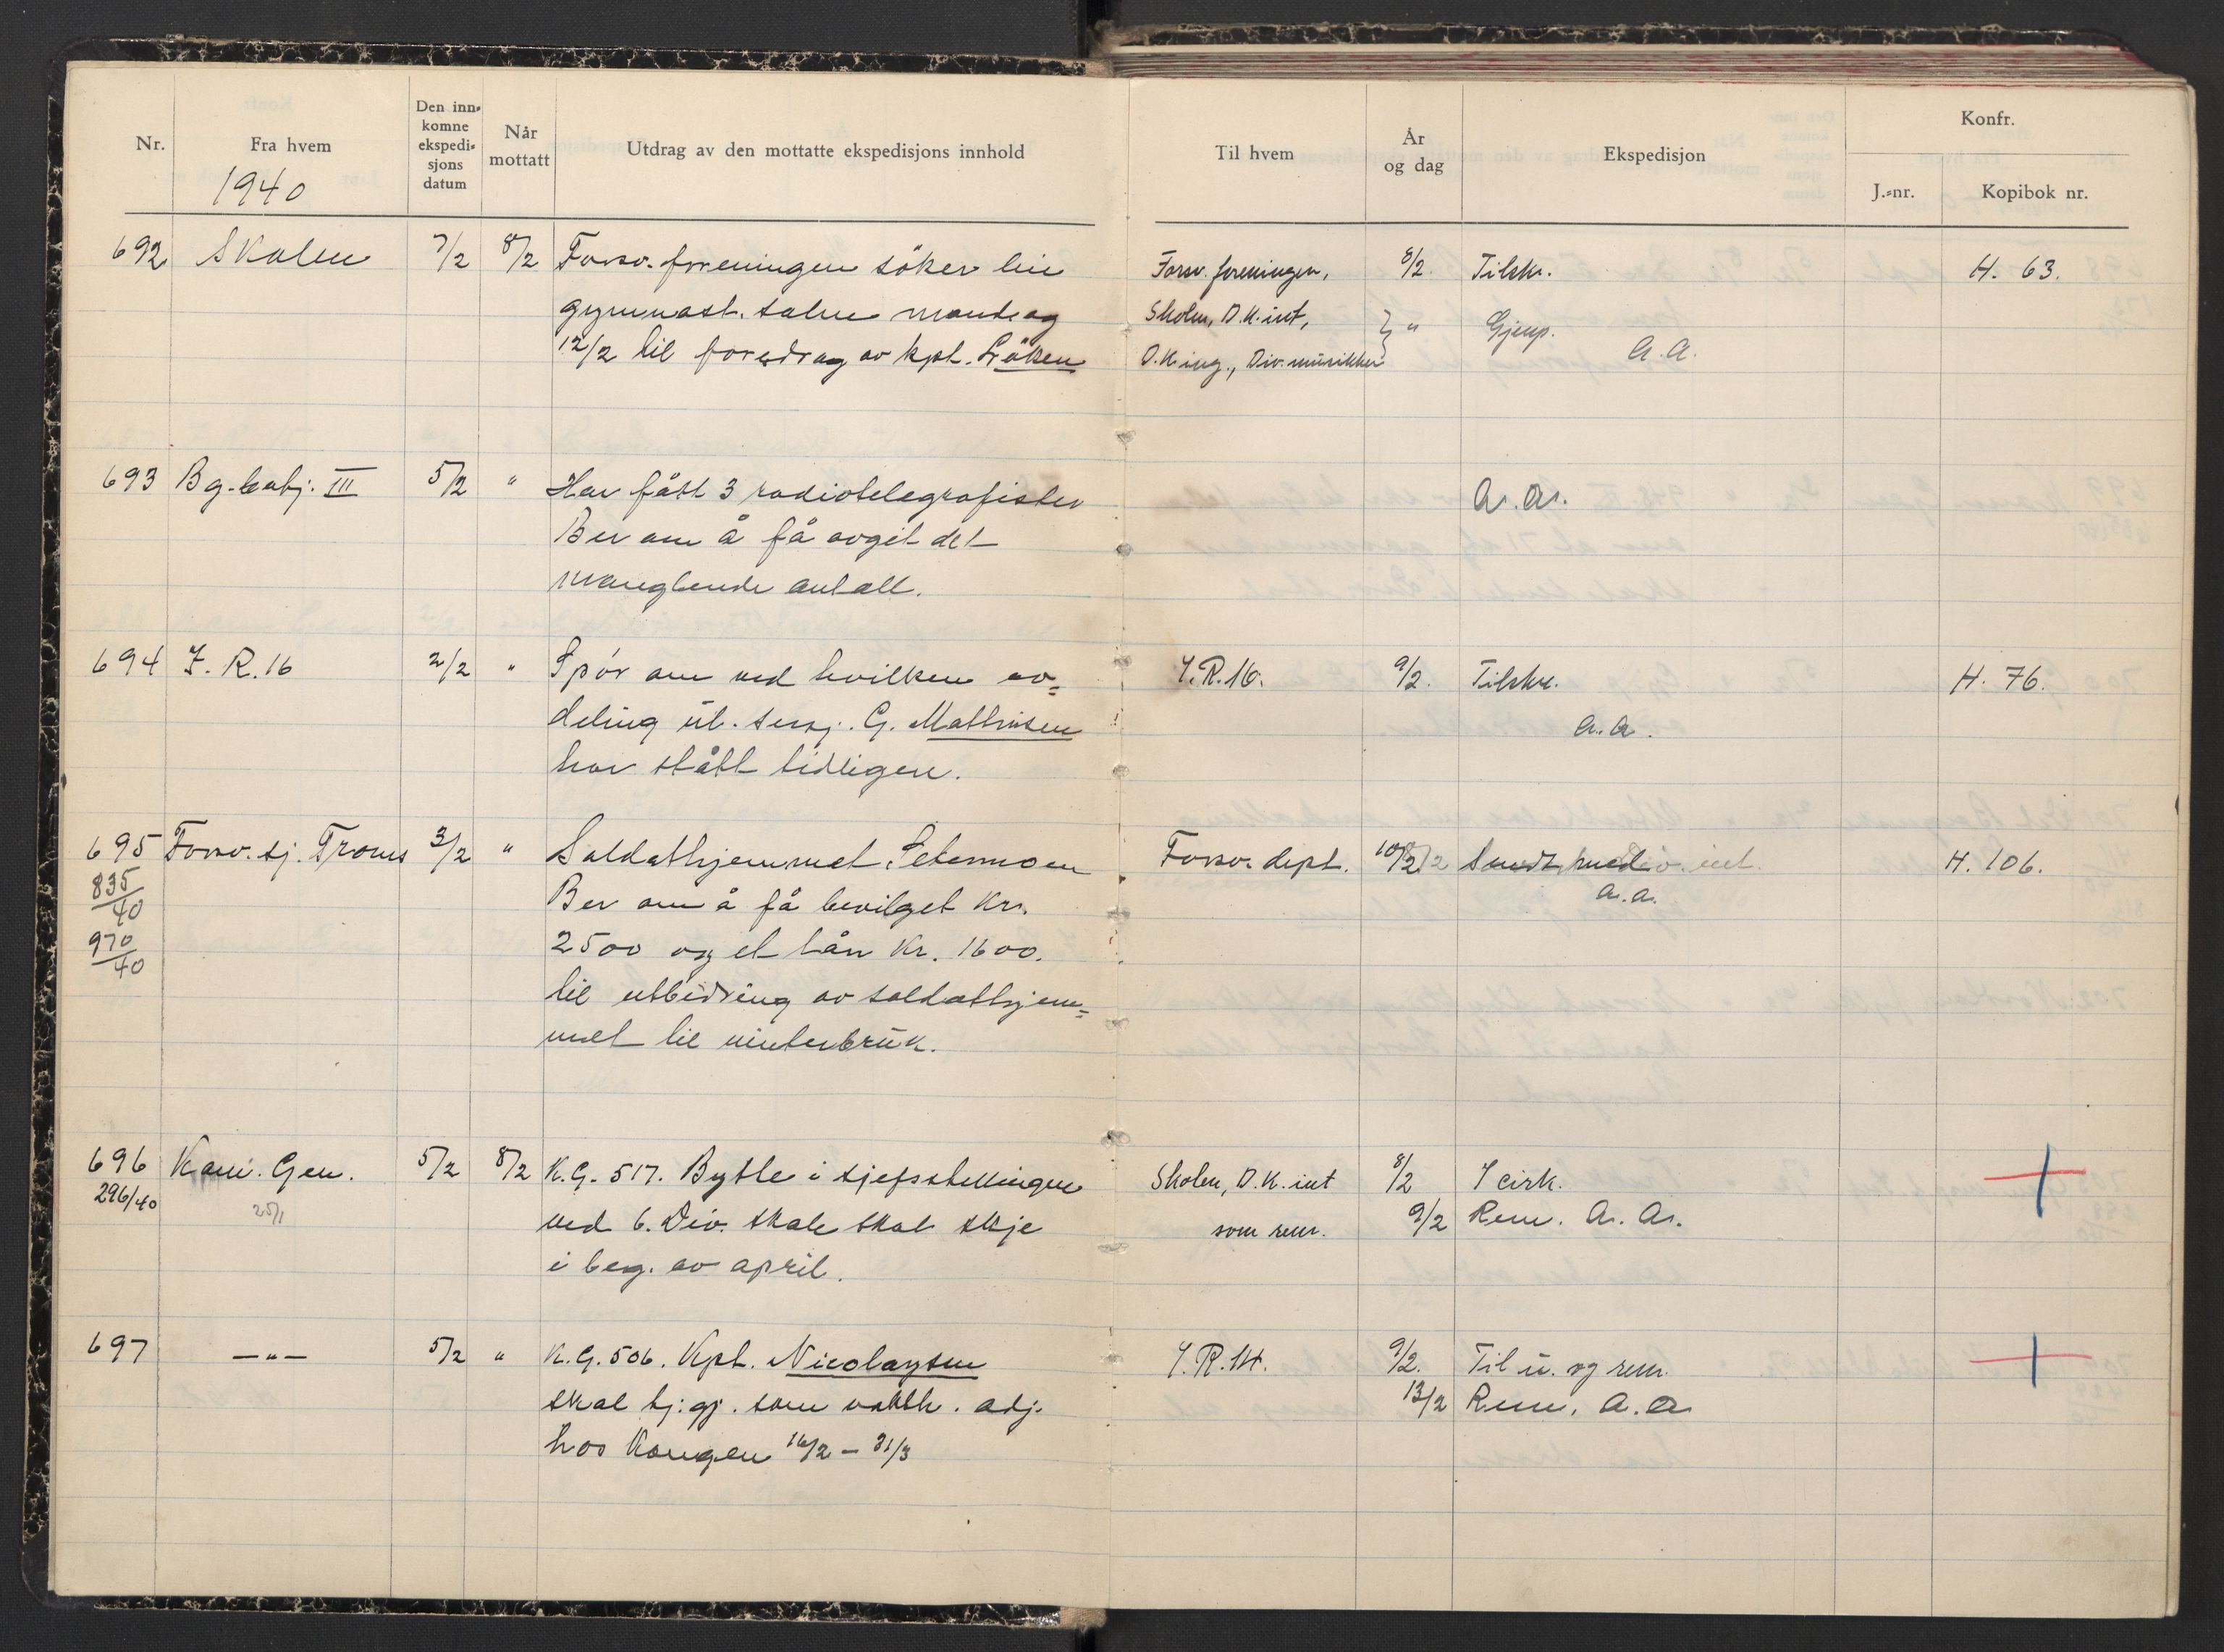 Nr. Fra hvem Den inn-komne ekspedi-sjons datum Når mottatt Utdrag av den mottatte ekspedisjons innhold Til hvem År og dag Ekspedisjon Konfr. J.-nr. Kopibok nr.
1940
692 Skolen 7/2 8/2 Forsv. foreningen söker leie Forsv. foreningen, 8/2. Tilskr. H. 63.
gymnast. salen mandag Skolen, D.K. int, } " Gjenp.
12/2 til foredrag av kpt. Löken D.K. ing., Div. musikken A.A.
693 Bg.batj. III 5/2 " Har fått 3 radiotelegrafister A.A.
Ber om å få avgit det
manglende antall.
694 I.R. 16 2/2 " Spör om ved hvilken av= I.R. 16. 9/2. Tilskr. H. 76.
deling ut. sersj. G. Mathisen A.A.
har stått tidligere.
695 Forsv. sj. Troms 3/2 " Soldathjemmet Setermoen Forsv. dept. 10/2 Sendt med H. 106.
835/40 Ber om å få bevilget kr. A.A.
970/40 2500 og et lån kr. 1600.
til utbedring av soldathjem=
met til vinterbruk.
696 Kom. Gen. 5/2 8/2 K.G. 517. Bytte i sjefsstillingen Skolen, D.K. int 8/2 I cirk.
296/40 25/1 ved 6. Div. skole skal skje som rem. 9/2 Rem. A.A.
i beg. av april.
697 — " — 5/2 " K.G. 506. Kpt. Nicolaysen I.R. 14. 9/2. Til u. og rem.
skal tj.gj. som vakth. adj. 13/2 Rem. A.A
hos Kongen 16/2 – 31/3